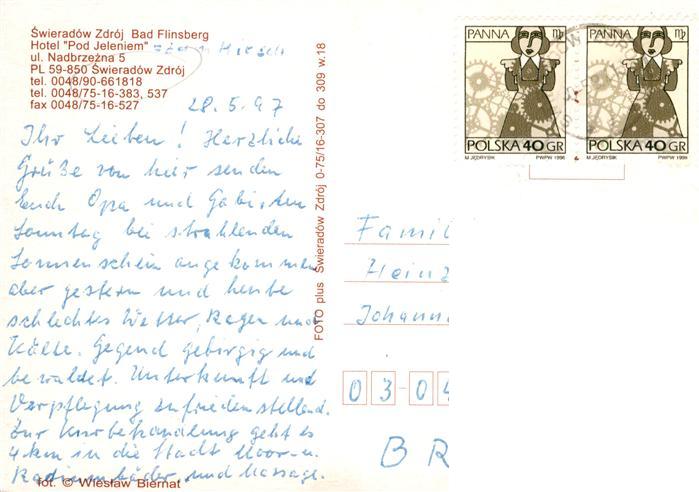 Świeradów Zdrój Bad Flinsberg
Hotel "Pod Jeleniem" = zum Hirsch
ul. Nadbrzeżna 5
PL 59-850 Świeradów Zdrój
tel. 0048/90-661818
tel. 0048/75-16-383, 537
fax 0048/75-16-527
28.5.97
Ihr Lieben! Herzliche
Grüße von hier senden
Euch Opa und Gabi. Am
Sonntag bei strahlenden
Sonnenschein angekommen
aber gestern und heute
schlechtes Wetter, Regen und
Kälte. Gegend gebirgig und
bewaldet. Unterkunft und
Verpflegung zufriedenstellend.
Zur Kurbehandlung geht es
4 km in die Stadt Moor- u.
Radiumbäder und Massage.
fot. © Wiesław Biernat
FOTO plus Świeradów Zdrój 0-75/16-307 do 309 w.18
PANNA
POLSKA 40 GR
M JĘDRYSIK PWPW 1996
PANNA
POLSKA 40 GR
M JĘDRYSIK PWPW 1996
Famil
Heinz
Johann
03-04
BR